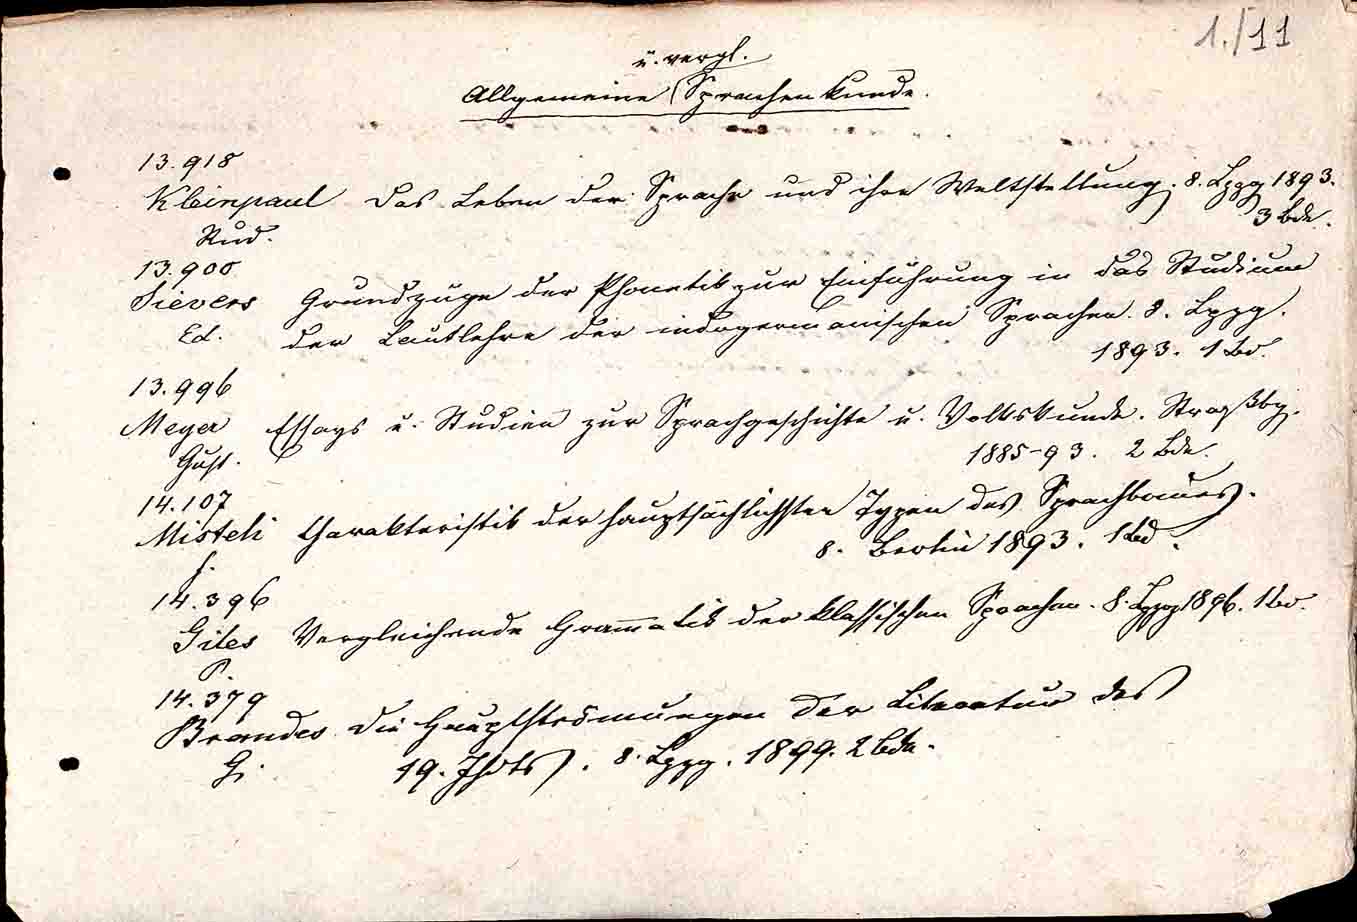 1./11
u. vergl.
Allgemeine Sprachenkunde.
13.918
Kleinpaul Das Leben der Sprache und ihre Weltstellung. 8. Lpzg 1893.
Rud. 3 Bde.
13.900
Sievers Grundzüge der Phonetik zur Einführung in das Studium
Ed. der Lautlehre der indogermanischen Sprachen. 8. Lpzg.
1893. 1 Bd.
13.996
Meyer Essays u. Studien zur Sprachgeschichte u. Volkskunde. Straßbg.
Gust. 1885-93. 2 Bde.
14.107
Misteli Charakteristik der hauptsächlichsten Typen des Sprachbaues.
f. 8. Berlin 1893. 1 Bd.
14.396
Giles Vergleichende Grammatik der klassischen Sprachen. 8. Lpzg 1896. 1 Bd.
P.
14.379
Brandes Die Hauptströmungen der Literatur des
G. 19. Jhdts. 8. Lpzg. 1899. 2 Bde.